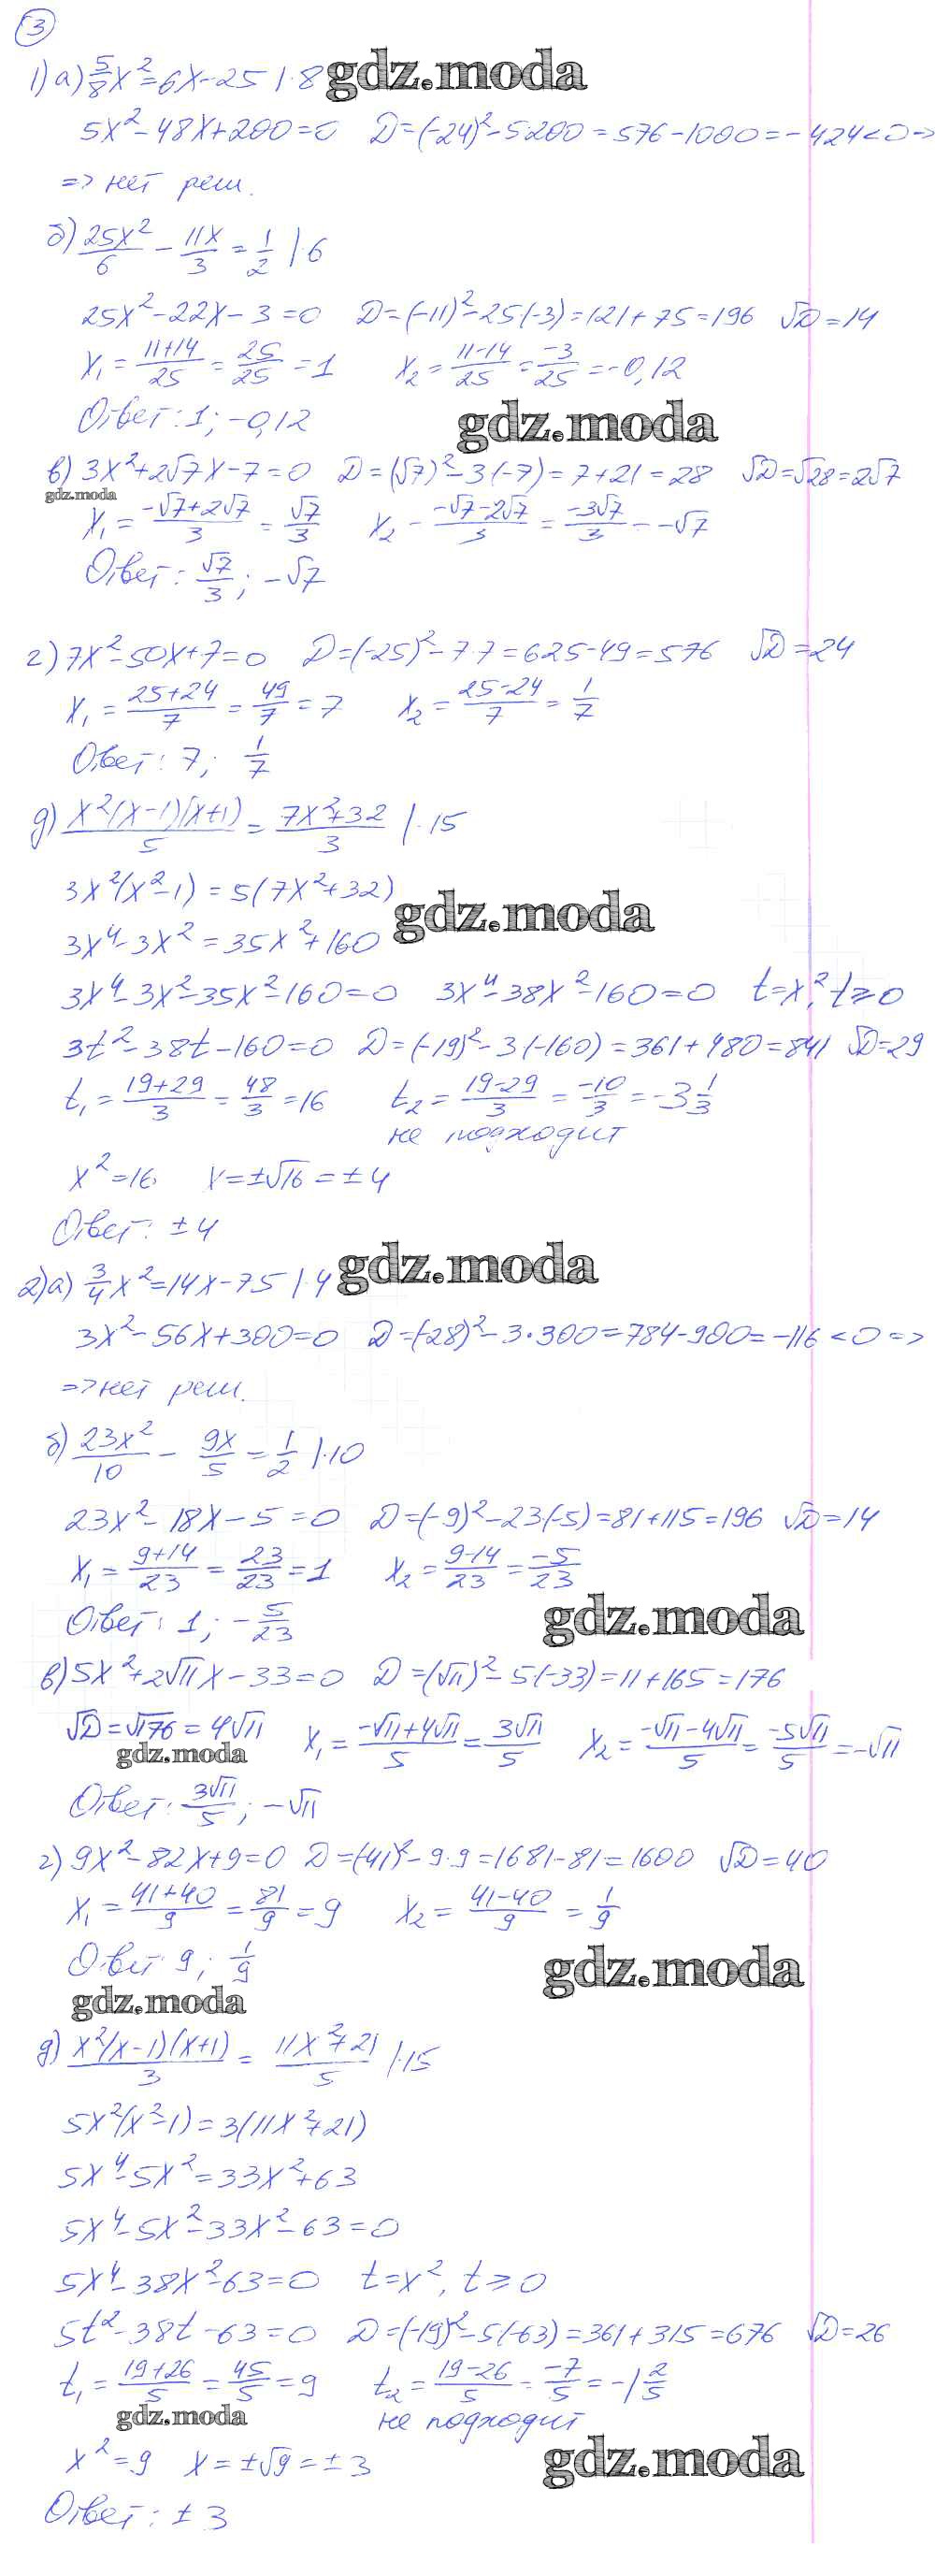 3
1) а) 5/8 x² = 6x - 25 | ·8 gdz.moda
5x² - 48x + 200 = 0 D = (-24)² - 5·200 = 576 - 1000 = -424 < 0 =>
=> нет реш.
б) 25x²/6 - 11x/3 = 1/2 | ·6
25x² - 22x - 3 = 0 D = (-11)² - 25·(-3) = 121 + 75 = 196 √D = 14
x₁ = (11+14)/25 = 25/25 = 1 x₂ = (11-14)/25 = -3/25 = -0,12
Ответ: 1; -0,12 gdz.moda
в) 3x² + 2√7x - 7 = 0 D = (√7)² - 3·(-7) = 7 + 21 = 28 √D = √28 = 2√7
gdz.moda
x₁ = (-√7+2√7)/3 = √7/3 x₂ = (-√7-2√7)/3 = -3√7/3 = -√7
Ответ: √7/3; -√7
г) 7x² - 50x + 7 = 0 D = (-25)² - 7·7 = 625 - 49 = 576 √D = 24
x₁ = (25+24)/7 = 49/7 = 7 x₂ = (25-24)/7 = 1/7
Ответ: 7; 1/7
д) x²(x-1)(x+1)/5 = (7x²+32)/3 | ·15
3x²(x²-1) = 5(7x²+32)
gdz.moda
3x⁴ - 3x² = 35x² + 160
3x⁴ - 3x² - 35x² - 160 = 0 3x⁴ - 38x² - 160 = 0 t = x², t ≥ 0
3t² - 38t - 160 = 0 D = (-19)² - 3·(-160) = 361 + 480 = 841 √D = 29
t₁ = (19+29)/3 = 48/3 = 16 t₂ = (19-29)/3 = -10/3 = -3 1/3
не подходит
x² = 16 x = ±√16 = ±4
Ответ: ±4
2) а) 3/4 x² = 14x - 75 | ·4 gdz.moda
3x² - 56x + 300 = 0 D = (-28)² - 3·300 = 784 - 900 = -116 < 0 =>
=> нет реш.
б) 23x²/10 - 9x/5 = 1/2 | ·10
23x² - 18x - 5 = 0 D = (-9)² - 23·(-5) = 81 + 115 = 196 √D = 14
x₁ = (9+14)/23 = 23/23 = 1 x₂ = (9-14)/23 = -5/23
Ответ: 1; -5/23 gdz.moda
в) 5x² + 2√11x - 33 = 0 D = (√11)² - 5·(-33) = 11 + 165 = 176
√D = √176 = 4√11 x₁ = (-√11+4√11)/5 = 3√11/5 x₂ = (-√11-4√11)/5 = -5√11/5 = -√11
gdz.moda
Ответ: 3√11/5; -√11
г) 9x² - 82x + 9 = 0 D = (-41)² - 9·9 = 1681 - 81 = 1600 √D = 40
x₁ = (41+40)/9 = 81/9 = 9 x₂ = (41-40)/9 = 1/9
Ответ 9; 1/9 gdz.moda
gdz.moda
д) x²(x-1)(x+1)/3 = (11x²+21)/5 | ·15
5x²(x²-1) = 3(11x²+21)
5x⁴ - 5x² = 33x² + 63
5x⁴ - 5x² - 33x² - 63 = 0
5x⁴ - 38x² - 63 = 0 t = x², t ≥ 0
5t² - 38t - 63 = 0 D = (-19)² - 5·(-63) = 361 + 315 = 676 √D = 26
t₁ = (19+26)/5 = 45/5 = 9 t₂ = (19-26)/5 = -7/5 = -1 2/5
gdz.moda не подходит
x² = 9 x = ±√9 = ±3 gdz.moda
Ответ: ±3